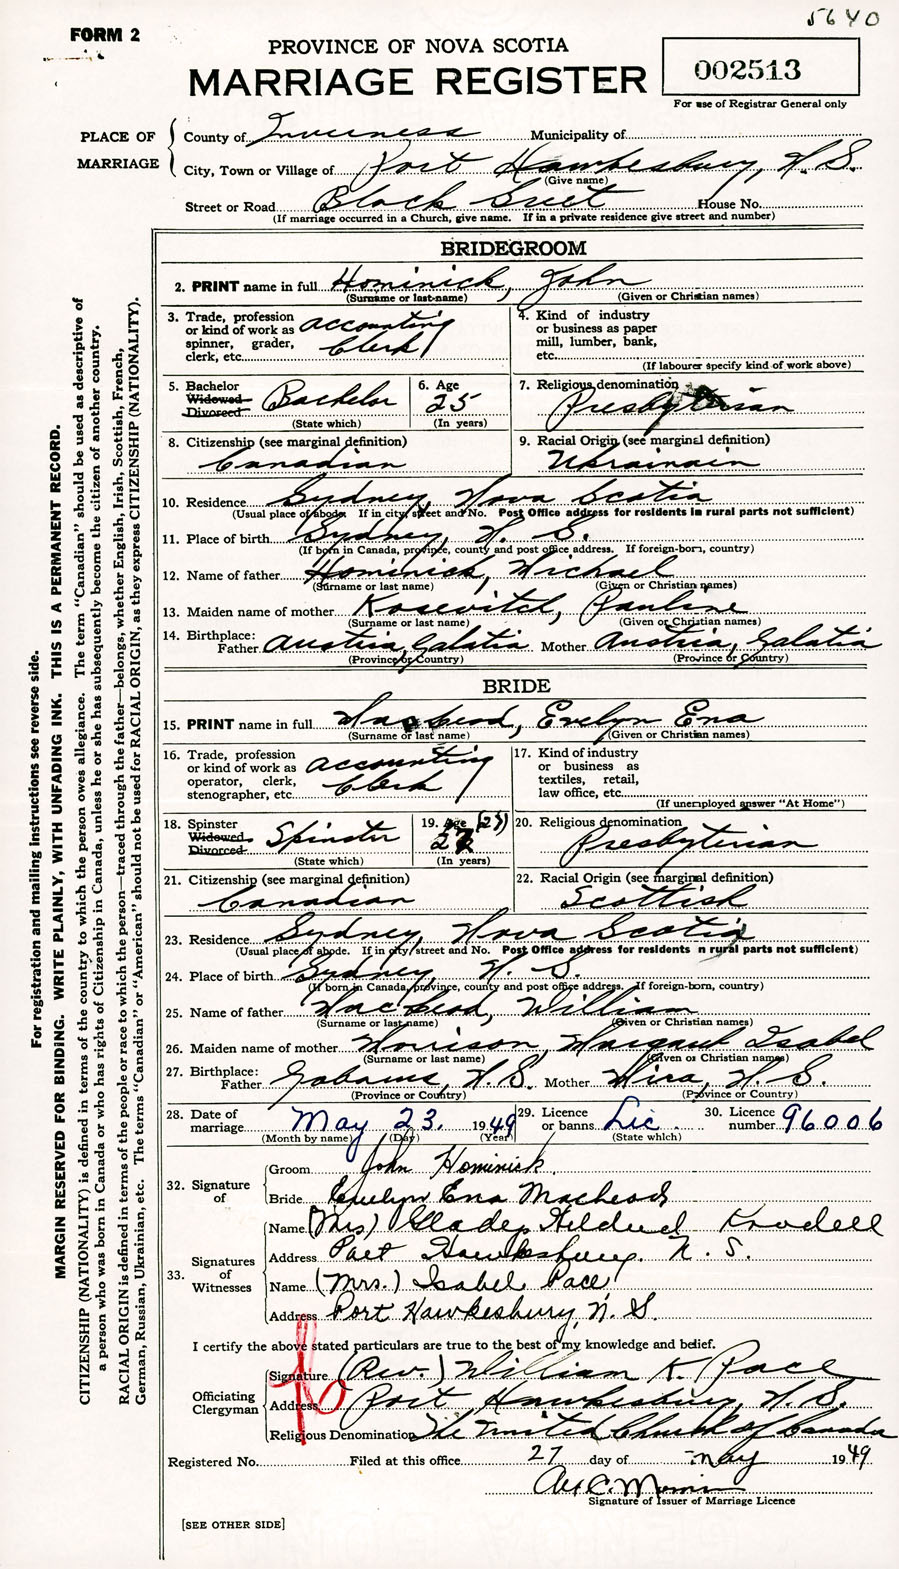 5640
FORM 2
PROVINCE OF NOVA SCOTIA
MARRIAGE REGISTER
002513
For use of Registrar General only
PLACE OF MARRIAGE
County of Inverness Municipality of
City, Town or Village of Port Hawkesbury, N. S.
(Give name)
Street or Road Black Street House No.
(If marriage occurred in a Church, give name. If in a private residence give street and number)
BRIDEGROOM
2. PRINT name in full Hominick, John
(Surname or last name) (Given or Christian names)
3. Trade, profession or kind of work as spinner, grader, clerk, etc. accounting Clerk
4. Kind of industry or business as paper mill, lumber, bank, etc.
(If labourer specify kind of work above)
5. Bachelor Widowed Divorced Bachelor
(State which)
6. Age 25
(In years)
7. Religious denomination Presbyterian
8. Citizenship (see marginal definition) Canadian
9. Racial Origin (see marginal definition) Ukrainain
10. Residence Sydney, Nova Scotia
(Usual place of abode. If in city, street and No. Post Office address for residents in rural parts not sufficient)
11. Place of birth Sydney, N. S.
(If born in Canada, province, county and post office address. If foreign-born, country)
12. Name of father Hominick, Michael
(Surname or last name) (Given or Christian names)
13. Maiden name of mother Kosevitch, Pauline
(Surname or last name) (Given or Christian names)
14. Birthplace: Father Austria, Galatia Mother Austria, Galatia
(Province or Country) (Province or Country)
BRIDE
15. PRINT name in full MacLeod, Evelyn Ena
(Surname or last name) (Given or Christian names)
16. Trade, profession or kind of work as operator, clerk, stenographer, etc. accounting Clerk
17. Kind of industry or business as textiles, retail, law office, etc.
(If unemployed answer "At Home")
18. Spinster Widowed Divorced Spinster
(State which)
19. Age
(In years)
20. Religious denomination Presbyterian
21. Citizenship (see marginal definition) Canadian
22. Racial Origin (see marginal definition) Scottish
23. Residence Sydney, Nova Scotia
(Usual place of abode. If in city, street and No. Post Office address for residents n rural parts not sufficient)
24. Place of birth Sydney, N. S.
(If born in Canada, province, county and post office address. If foreign-born, country)
25. Name of father MacLeod, William
(Surname or last name) (Given or Christian names)
26. Maiden name of mother Morrison, Margaret Isabel
(Surname or last name) (Given or Christian names)
27. Birthplace: Father Gabarus, N. S. Mother Mira, N. S.
(Province or Country) (Province or Country)
28. Date of marriage May 23. 1949
(Month by name) (Day) (Year)
29. Licence or banns Lic.
(State which)
30. Licence number 96006
32. Signature of
Groom John Hominick.
Bride Evelyn Ena MacLeod
33. Signatures of Witnesses
Name (Mrs) Gladys Mildred
Address Port Hawkesbury. N. S.
Name (Mrs.) Isabel Pace
Address Port Hawkesbury, N. S.
I certify the above stated particulars are true to the best of my knowledge and belief.
Officiating Clergyman
Signature (Rev.) William K. Pace
Address Port Hawkesbury, N. S.
Religious Denomination The United Church of Canada
Registered No. Filed at this office 27 day of May 1949
Signature of Issuer of Marriage Licence
[SEE OTHER SIDE]
For registration and mailing instructions see reverse side.
MARGIN RESERVED FOR BINDING. WRITE PLAINLY, WITH UNFADING INK. THIS IS A PERMANENT RECORD.
CITIZENSHIP (NATIONALITY) is defined in terms of the country to which the person owes allegiance. The term "Canadian" should be used as descriptive of
a person who was born in Canada or who has rights of Citizenship in Canada, unless he or she has subsequently become the citizen of another country.
RACIAL ORIGIN is defined in terms of the people or race to which the person—traced through the father—belongs, whether English, Irish, Scottish, French,
German, Russian, Ukrainian, etc. The terms "Canadian" or "American" should not be used for RACIAL ORIGIN, as they express CITIZENSHIP (NATIONALITY).